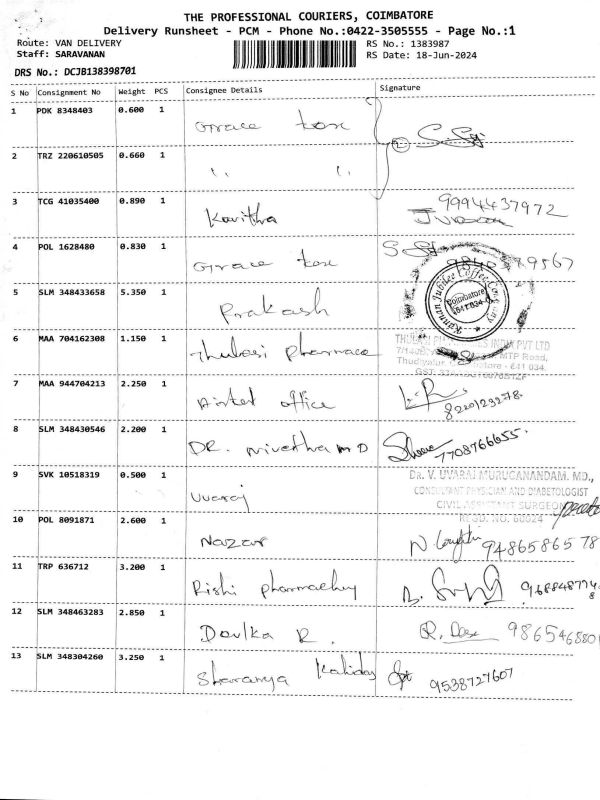 THE PROFESSIONAL COURIERS, COIMBATORE
Delivery Runsheet - PCM - Phone No.:0422-3505555 - Page No.:1
Route: VAN DELIVERY
RS No.: 1383987
Staff: SARAVANAN
RS Date: 18-Jun-2024
DRS No.: DCJB138398701
S No Consignment No Weight PCS Consignee Details Signature
1 PDK 8348403 0.600 1
Grace
2 TRZ 220610505 0.660 1 " "
3 TCG 41035400 0.890 1 Kavitha 9994437972
4 POL 1628480 0.830 1 Grace
5 SLM 348433658 5.350 1 Prakash
Kannan Jubilee Coffee Company
Coimbatore
641 034
6 MAA 704162308 1.150 1 Thulasi pharmace
INDIA PVT LTD
MTP Road,
641 034.
7 MAA 944704213 2.250 1 Airtel office 8220123278.
8 SLM 348430546 2.200 1 DR. nivetha MD 7708766655.
9 SVK 10518319 0.500 1 Uvaraj
DR. V. UVARAJ MURUGANANDAM. MD.,
CONSULTANT PHYSICIAN AND DIABETOLOGIST
CIVIL ASSISTANT SURGEON
REGD. NO. 60024
10 POL 8091871 2.600 1 Nazar 9486586578
11 TRP 636712 3.200 1 Rishi pharmachy
12 SLM 348463283 2.850 1 R.
13 SLM 348304260 3.250 1 Sharanya Kalidas 9538727607